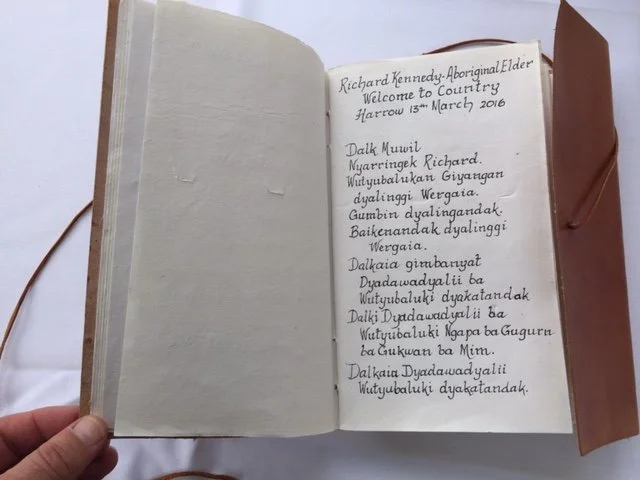 Richard Kennedy. Aboriginal Elder
Welcome to Country
Harrow 13th March 2016
Dalk Muwil
Nyarringek Richard.
Wutyubalukan Giyangan
dyalinggi Wergaia.
Gumbin dyalingandak.
Baikenandak dyalinggi
Wergaia.
Dalkaia gimbanyat
Dyadawadyalii ba
Wutyubaluki dyakatandak
Dalki Dyadawadyalii ba
Wutyubaluki Ngapa ba Gugurn
ba Gukwan ba Mim.
Dalkaia Dyadawadyalii
Wutyubaluki dyakatandak.